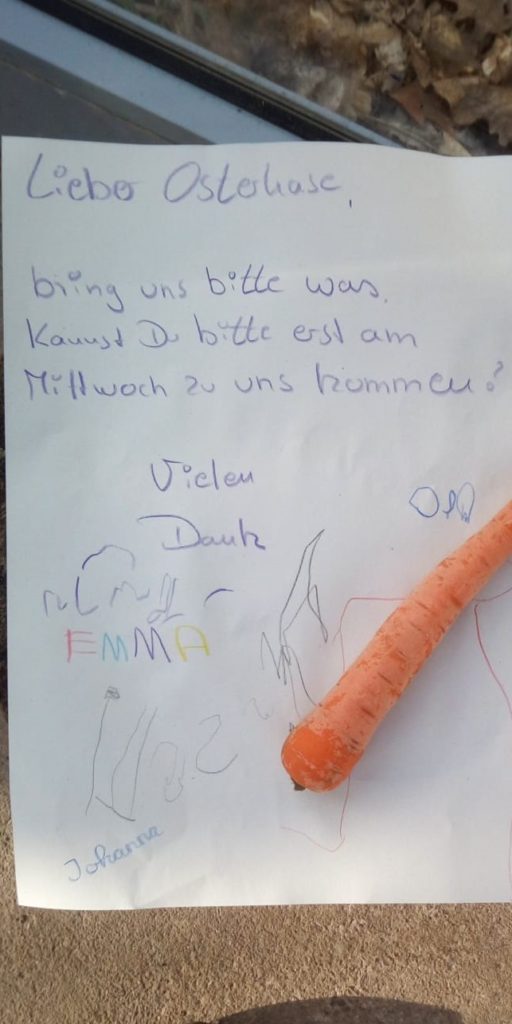 Lieber Osterhase,
bring uns bitte was.
Kannst Du bitte erst am
Mittwoch zu uns kommen?
Vielen
Dank
EMMA
Johanna